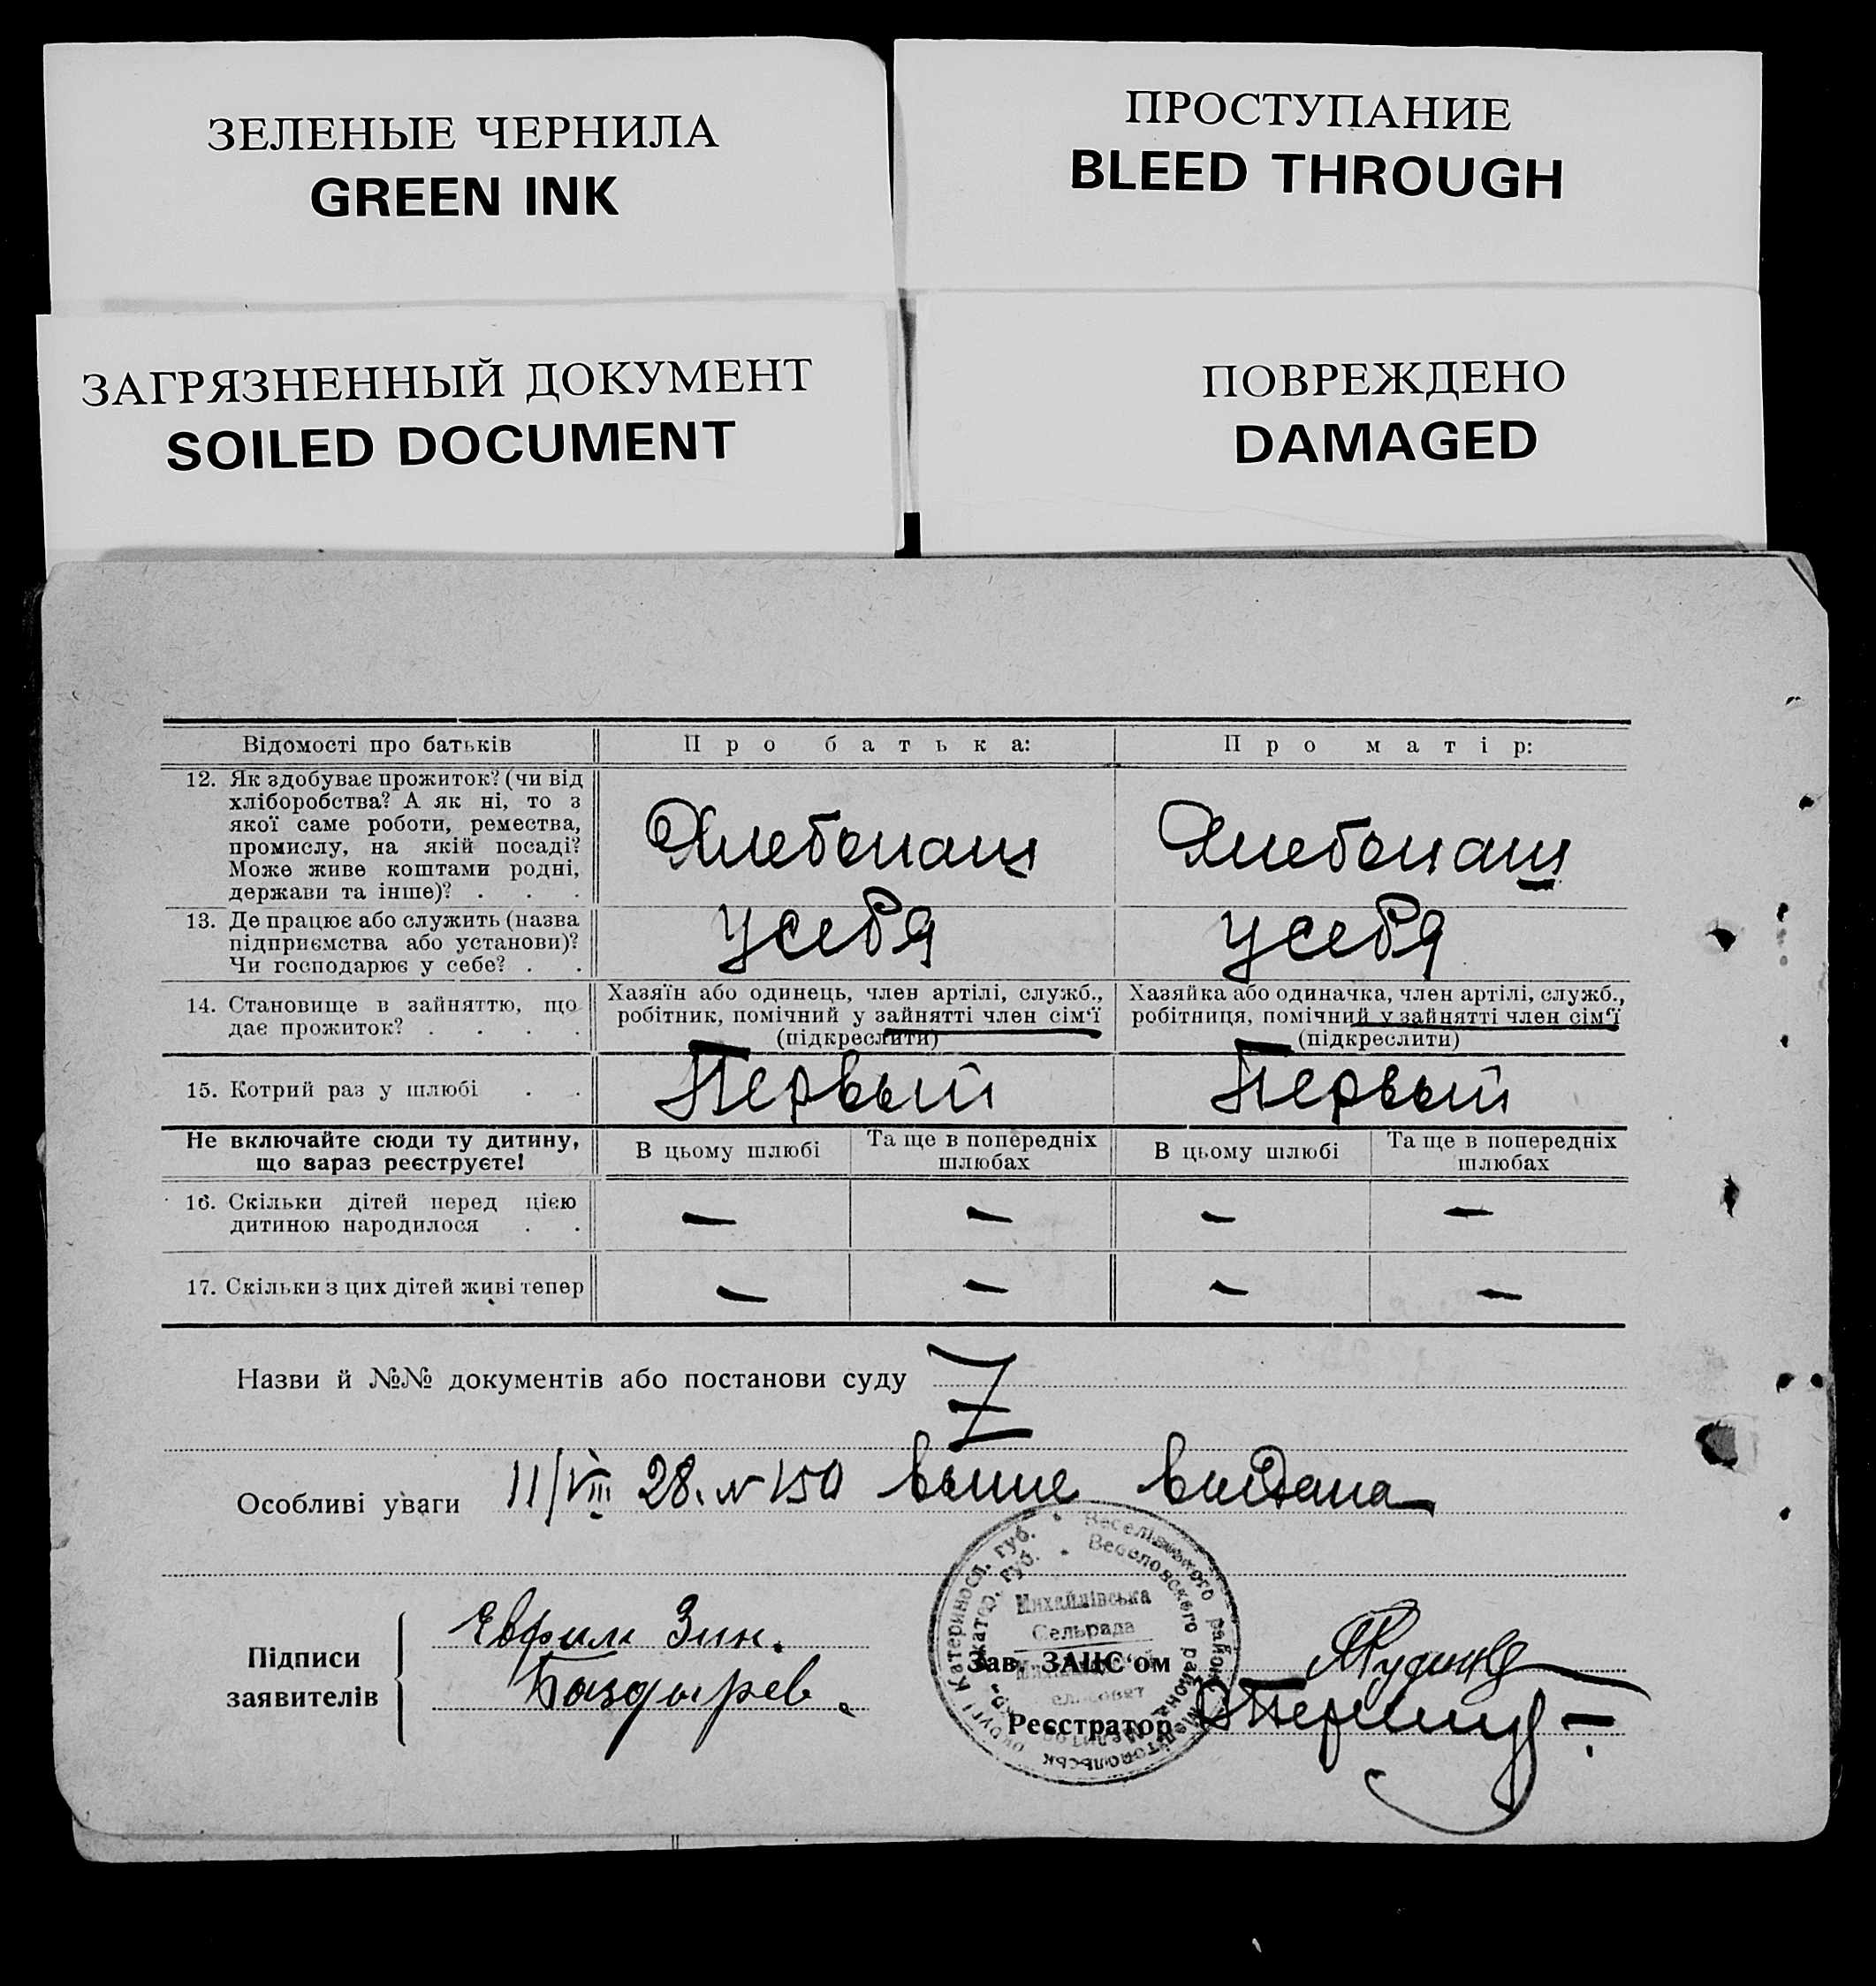 ЗЕЛЕНЫЕ ЧЕРНИЛА
GREEN INK
ПРОСТУПАНИЕ
BLEED THROUGH
ЗАГРЯЗНЕННЫЙ ДОКУМЕНТ
SOILED DOCUMENT
ПОВРЕЖДЕНО
DAMAGED
Відомості про батьків
Про батька:
Про матір:
12. Як здобуває прожиток? (чи від
хліборобства? А як ні, то з
якої саме роботи, ремества,
промислу, на якій посаді?
Може живе коштами родні,
держави та інше)? . . .
Хлебопаш
Хлебопаш
13. Де працює або служить (назва
підприємства або установи)?
Чи господарює у себе? . .
у себя
у себя
14. Становище в зайняттю, що
дає прожиток? . . . .
Хазяїн або одинець, член артілі, служб.,
робітник, помічний у зайнятті член сім'ї
(підкреслити)
Хазяйка або одиначка, член артілі, служб.,
робітниця, помічний у зайнятті член сім'ї
(підкреслити)
15. Котрий раз у шлюбі . .
Первый
Первый
Не включайте сюди ту дитину,
що зараз реєструєте!
В цьому шлюбі
Та ще в попередніх
шлюбах
В цьому шлюбі
Та ще в попередніх
шлюбах
16. Скільки дітей перед цією
дитиною народилося . .
— — — —
17. Скільки з цих дітей живі тепер
— — — —
Назви й №№ документів або постанови суду
Особливі уваги 11/VIII 28. № 150 выпис выдана
Підписи
заявителів
Евфим Зин.
Баздырев.
Катериносл. губ. Веселівського району Мелітопольськ округі
Екатер. губ. Веселовского района
Михайлівська
Сельрада
Зав. ЗАЦС'ом
Реєстратор